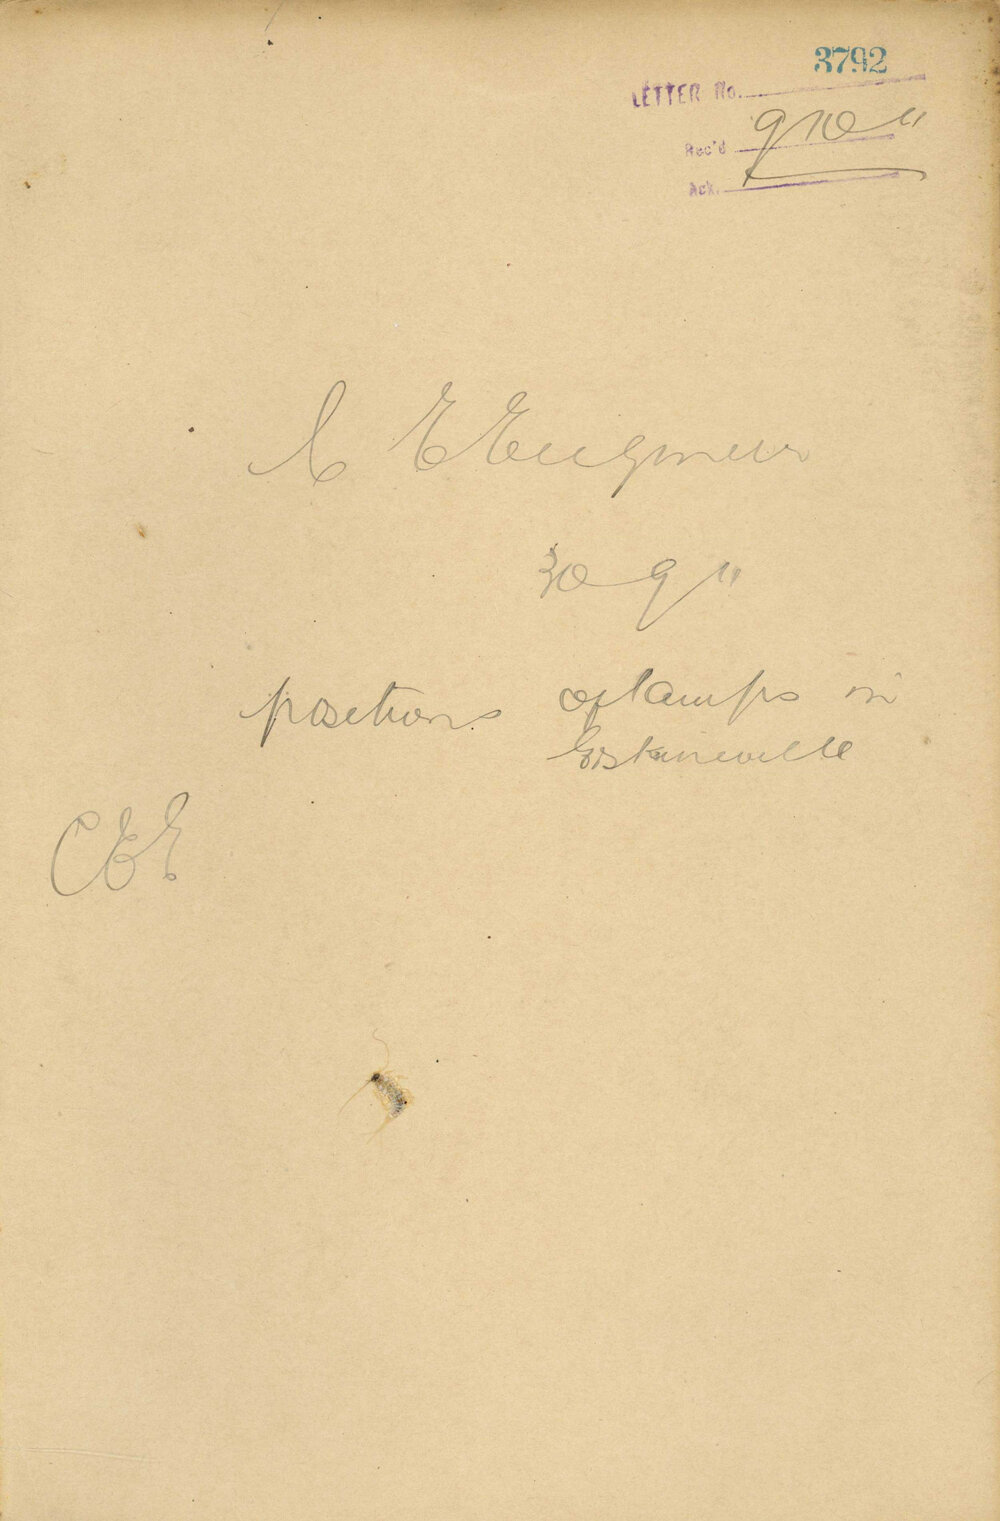 3792
LETTER No.
Rec'd 9 10 11
Ack.
C E Engineer
30 9 11
positions of lamps in
Erskineville
CEE